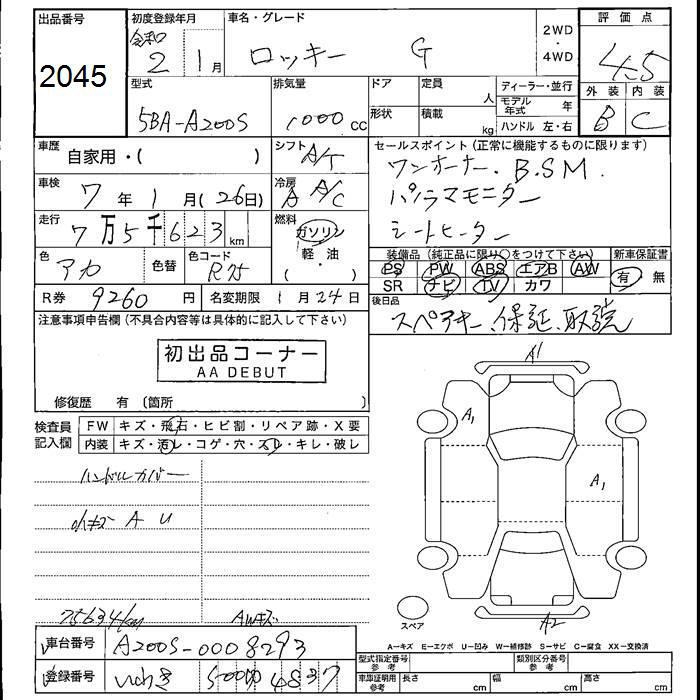 出品番号 初度登録年月 車名・グレード 2WD・4WD 評価点
2045 令和 2 1月 ロッキー G 4.5
型式 排気量 ドア形状 定員 人 ディーラー・並行 外装 内装
積載 kg モデル年式 年
5BA-A200S 1000cc ハンドル 左・右 B C
車歴 自家用・( ) シフト A/T セールスポイント(正常に機能するものに限ります)
車検 7年 1月(26日) 冷房 A A/C ワンオーナー.B.S.M.
走行 7万5千623km 燃料 ガソリン 軽・油 ( ・ ) パノラマモニター
シートヒーター
色 アカ 色替 色コード R75 装備品(純正品に限り○をつけて下さい) 新車保証書
PS PW ABS エアB AW 有 無
SR ナビ TV カワ
R券 9260円 名変期限 1月24日 後日品
スペアキー.保証.取説
注意事項申告欄(不具合内容等は具体的に記入して下さい)
初出品コーナー
AA DEBUT
修復歴 有(箇所 )
A1
A1
A1
A2
検査員記入欄 FW キズ・飛石・ヒビ割・リペア跡・X要
内装 キズ・汚レ・コゲ・穴・スレ・キレ・破レ
ハンドルカバー
小キズ A U
75634km AWキズ
スペア
A-キズ E-エクボ U-凹み W-補修跡 S-サビ C-腐食 XX-交換済
車台番号 A200S-0008293
型式指定番号 参考 類別区分番号 参考
登録番号
車庫証明用 参考 長さ cm 幅 cm 高さ cm